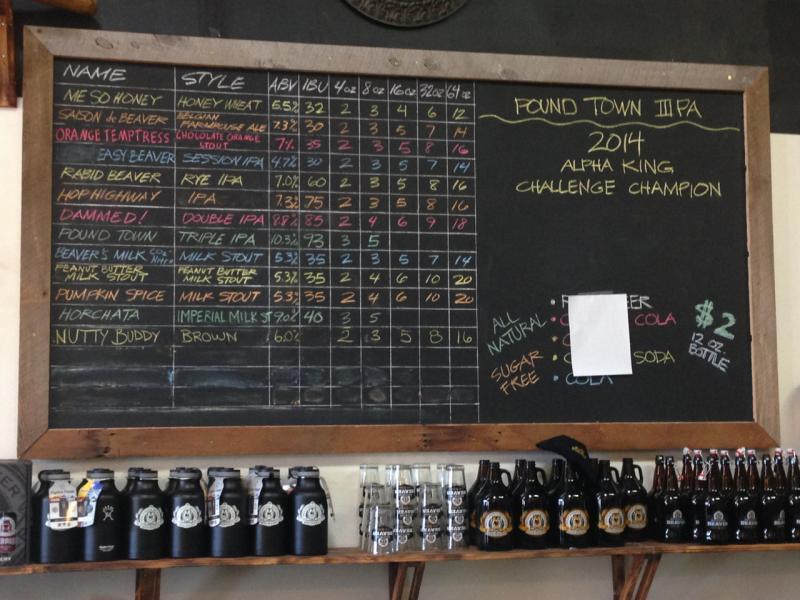 NAME STYLE ABV IBU 4oz 8oz 16oz 32oz 64oz
ME SO HONEY HONEY WHEAT 5.5% 32 2 3 4 6 12
SAISON de BEAVER BELGIAN FARMHOUSE ALE 7.3% 30 2 3 5 7 14
ORANGE TEMPTRESS CHOCOLATE ORANGE STOUT 7% 35 2 3 5 8 16
EASY BEAVER SESSION IPA 4.7% 30 2 3 5 7 14
RABID BEAVER RYE IPA 7.0% 60 2 3 5 8 16
HOP HIGHWAY IPA 7.3% 75 2 3 5 8 16
DAMMED! DOUBLE IPA 8.8% 85 2 4 6 9 18
POUND TOWN TRIPLE IPA 10.3% 93 3 5
BEAVER'S MILK MILK STOUT 5.3% 35 2 3 5 7 14
PEANUT BUTTER MILK STOUT PEANUT BUTTER MILK STOUT 5.3% 35 2 4 6 10 20
PUMPKIN SPICE MILK STOUT 5.3% 35 2 4 6 10 20
HORCHATA IMPERIAL MILK ST 9.0% 40 3 5
NUTTY BUDDY BROWN 6.0% 2 3 5 8 16
POUND TOWN IIIPA
2014
ALPHA KING
CHALLENGE CHAMPION
ALL NATURAL
SUGAR FREE
COLA
SODA
COLA
$2
12 OZ.
BOTTLE